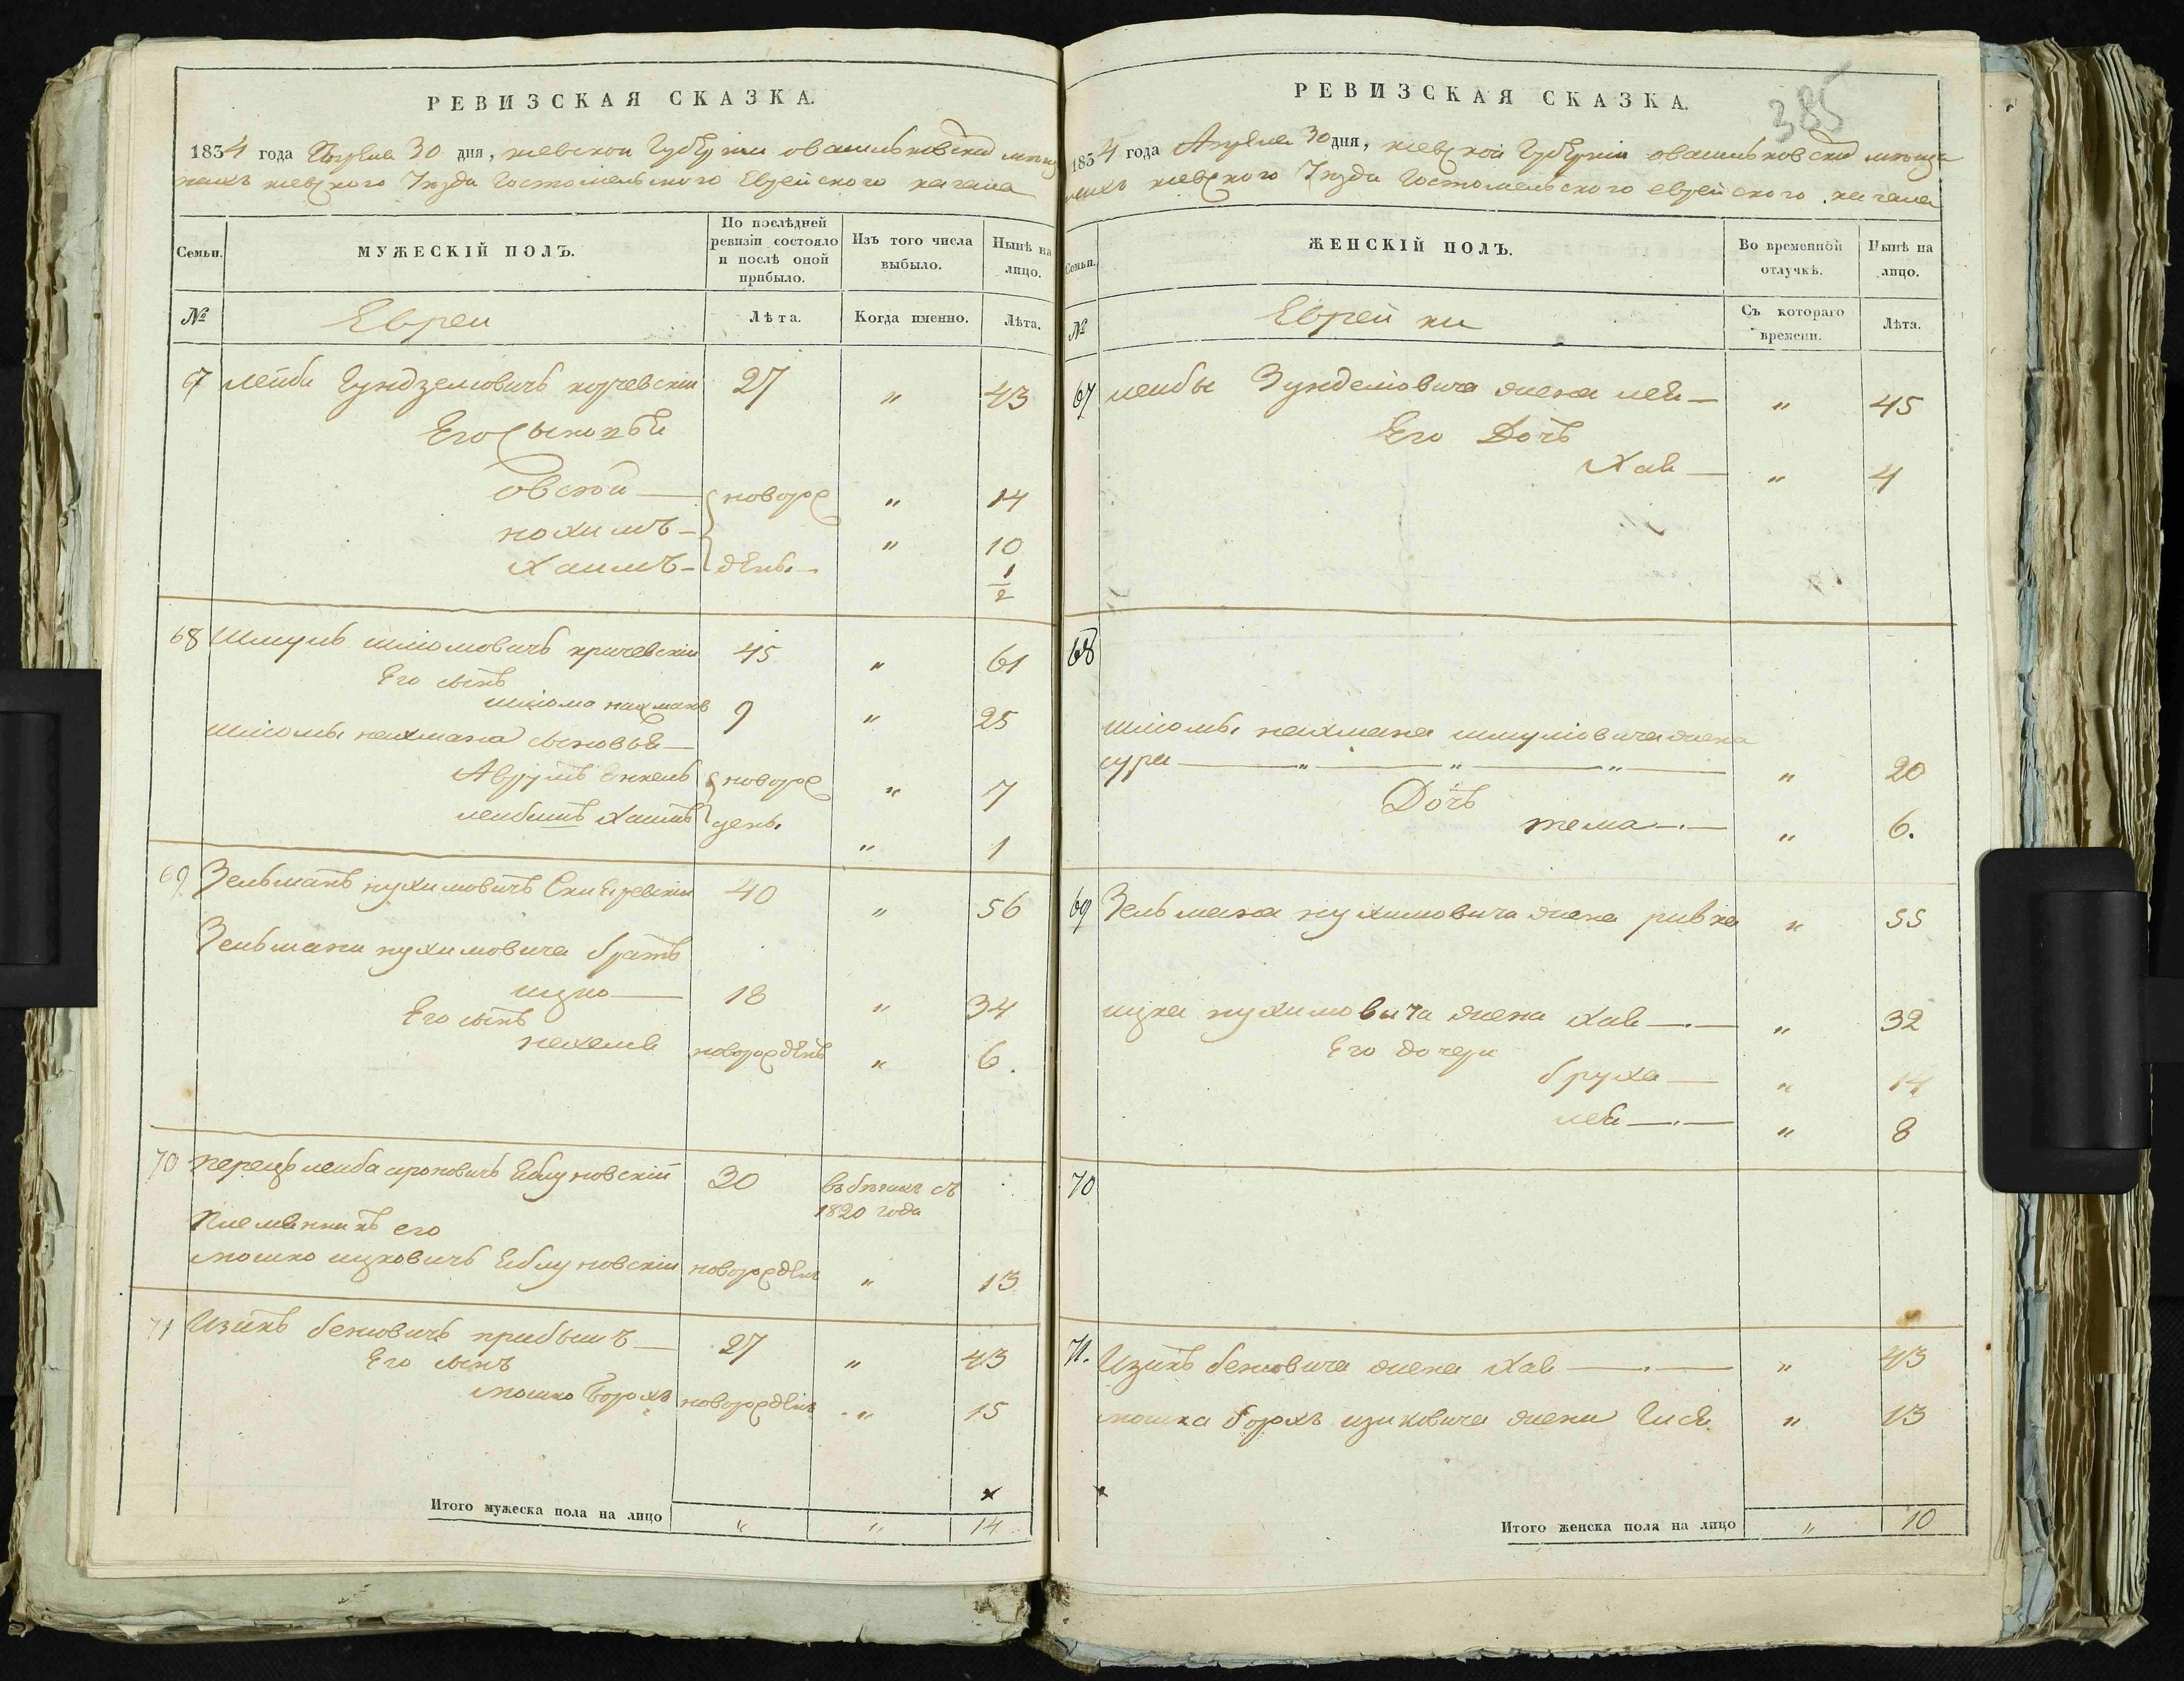 РЕВИЗСКАЯ СКАЗКА.
1834 года Апреля 30 дня, киевской Губернии овасильковский мещa
нахъ киевского Уезда Гостомельского Еврейского кагала
Семьи. МУЖЕСКІЙ ПОЛЪ. По послѣдней ревизіи состояло и послѣ оной прибыло. Изъ того числа выбыло. Нынѣ на лицо.
№ Евреи Лѣта. Когда именно. Лѣта.
67 лейба Гундзелиовичъ корчевскій 27 " 43
Его Сыновья
овсей — новорож " 14
нохимъ — " 10
Хаимъ — денъ. 1/2
68 Шмуль шліомовичъ кричевскіи 45 " 61
Его сынъ
шліома нахманъ 9 " 25
шліомы нахмана сыновья —
Аврумъ Енкель новорож " 7
лейбишъ Хаимъ денъ. " 1
69 Зельманъ нухимовичъ 40 " 56
Зельмана нухимовича братъ
ицко — 18 " 34
Его сынъ
новорожденъ " 6.
70 перецъ лейба ароновичъ Еблуновскій 30 въ бѣгахъ съ
1820 года
Племянникъ его
мошко ицковичъ Еблуновскіи новорожден " 13
71 Изикъ бениовичъ прибышъ — 27 " 43
Его сынъ
мошко Борохъ новорожден " 15
Итого мужеска пола на лицо " " 14
РЕВИЗСКАЯ СКАЗКА.
385
1834 года Апреля 30 дня, киевской Губерніи овасильковский мѣща
нахъ киевского Уезда Гостомельского еврейского кагала
Семьи. ЖЕНСКІЙ ПОЛЪ. Во временной отлучкѣ. Нынѣ на лицо.
№ Еврейки Съ котораго времени. Лѣта.
67 лейбы Зунделіовича жена лея — " 45
Его Дочь
Хая — " 4
68
шліомы нахмана шмуліовича жена
сура — " — " — " — " 20
Дочь
тема — " 6.
69 Зельмана нухимовича жена ривка " 55
ицка нухимовича жена Хая — " 32
Его дочери
бруха — " 14
лея — " 8
70
71. Изикъ бениовича жена Хая — " 43
мошка борохъ изиковича жена Гися " 13
Итого женска пола на лицо " 10